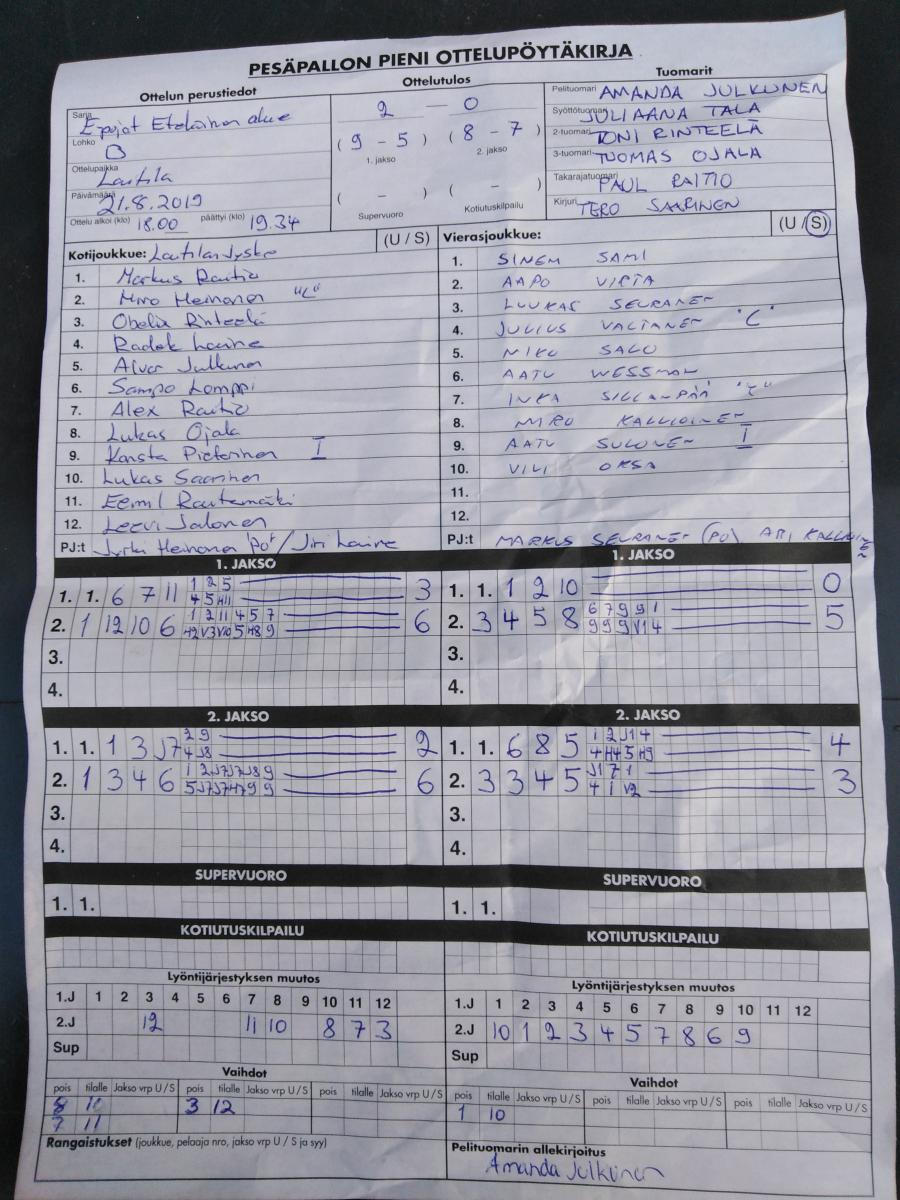 PESÄPALLON PIENI OTTELUPÖYTÄKIRJA
Ottelun perustiedot
Sarja Epojat Eteläinen alue
Lohko B
Ottelupaikka Laitila
Päivämäärä 21.8.2019
Ottelu alkoi (klo) 18.00 päättyi (klo) 19.34
Ottelutulos
2 — 0
( 9 - 5 ) ( 8 - 7 )
1. jakso 2. jakso
( - ) ( - )
Supervuoro Kotiutuskilpailu
Tuomarit
Pelituomari AMANDA JULKUNEN
Syöttötuomari JULIAANA TALA
2-tuomari TONI RINTEELÄ
3-tuomari TUOMAS OJALA
Takarajatuomari PAUL RAITIO
Kirjuri TERO SAARINEN
Kotijoukkue: Laitilan Jyske (U / S)
1. Markus Raitio
2. Miro Heinonen "C"
3. Obelix Rinteelä
4. Radek Laine
5. Alvar Julkunen
6. Sampo Lomppi
7. Alex Raitio
8. Lukas Ojala
9. Konsta Pietarinen I
10. Lukas Saarinen
11. Eemil Rautamäki
12. Leevi Jalonen
PJ:t Jyrki Heinonen "PO" / Jiri Laine
Vierasjoukkue: (U / S)
1. SINEM SAMI
2. AAPO VIRTA
3. LUUKAS SEURANEN
4. JULIUS VALTANEN "C"
5. NIKO SALO
6. AATU WESSMAN
7. INKA SILLANPÄÄ "C"
8. MIRO KALLIOINEN
9. AATU SULONEN I
10. VILI OKSA
11.
12.
PJ:t MARKUS SEURANEN (PO) ARI KALLIOINEN
1. JAKSO
1. 1. 6 7 11 1 2 5 3
4 5 H11
2. 1 12 10 6 1 2 11 4 5 7 6
H2 V3 V10 5 H8 9
3.
4.
1. JAKSO
1. 1. 1 2 10 0
2. 3 4 5 8 6 7 9 9 1 5
9 9 9 V1 4
3.
4.
2. JAKSO
1. 1. 1 3 J7 2 9 2
4 J8
2. 1 3 4 6 1 2 J7 J7 J8 9 6
5 J7 J7 H7 9 9
3.
4.
2. JAKSO
1. 1. 6 8 5 1 2 J1 4 4
4 H4 5 H9
2. 3 3 4 5 J1 7 1 3
4 1 V2
3.
4.
SUPERVUORO
1. 1.
SUPERVUORO
1. 1.
KOTIUTUSKILPAILU
KOTIUTUSKILPAILU
Lyöntijärjestyksen muutos
1.J 1 2 3 4 5 6 7 8 9 10 11 12
2.J 12 11 10 8 7 3
Sup
Lyöntijärjestyksen muutos
1.J 1 2 3 4 5 6 7 8 9 10 11 12
2.J 10 1 2 3 4 5 7 8 6 9
Sup
Vaihdot
pois tilalle Jakso vrp U / S pois tilalle Jakso vrp U / S pois tilalle Jakso vrp U / S
8 10 3 12
7 11
Vaihdot
pois tilalle Jakso vrp U / S pois tilalle Jakso vrp U / S pois tilalle Jakso vrp U / S
1 10
Rangaistukset (joukkue, pelaaja nro, jakso vrp U / S ja syy)
Pelituomarin allekirjoitus
Amanda Julkunen